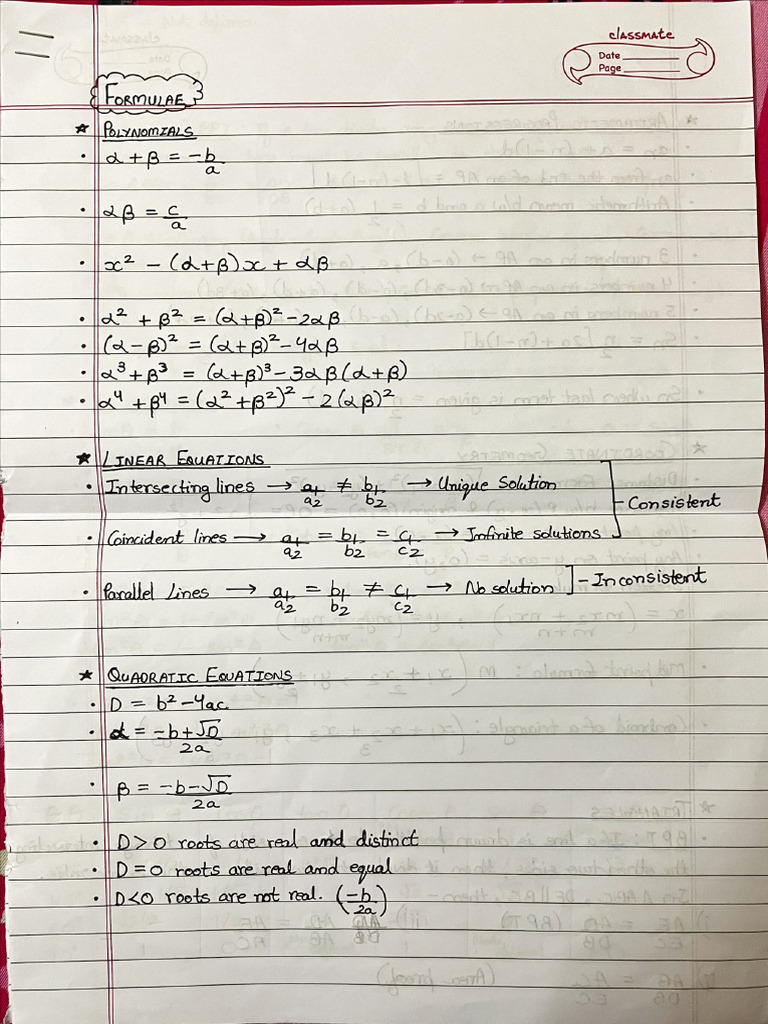 classmate
Date
Page
FORMULAE
★ POLYNOMIALS
• α + β = -b/a
• αβ = c/a
• x² - (α+β)x + αβ
• α² + β² = (α+β)² - 2αβ
• (α-β)² = (α+β)² - 4αβ
• α³ + β³ = (α+β)³ - 3αβ(α+β)
• α⁴ + β⁴ = (α² + β²)² - 2(αβ)²
★ LINEAR EQUATIONS
• Intersecting lines → a₁/a₂ ≠ b₁/b₂ → Unique Solution
- Consistent
• Coincident lines → a₁/a₂ = b₁/b₂ = c₁/c₂ → Infinite solutions
• Parallel Lines → a₁/a₂ = b₁/b₂ ≠ c₁/c₂ → No solution ] - Inconsistent
★ QUADRATIC EQUATIONS
• D = b² - 4ac
• α = -b+√D/2a
• β = -b-√D/2a
• D>0 roots are real and distinct
• D=0 roots are real and equal
• D<0 roots are not real. (-b/2a)